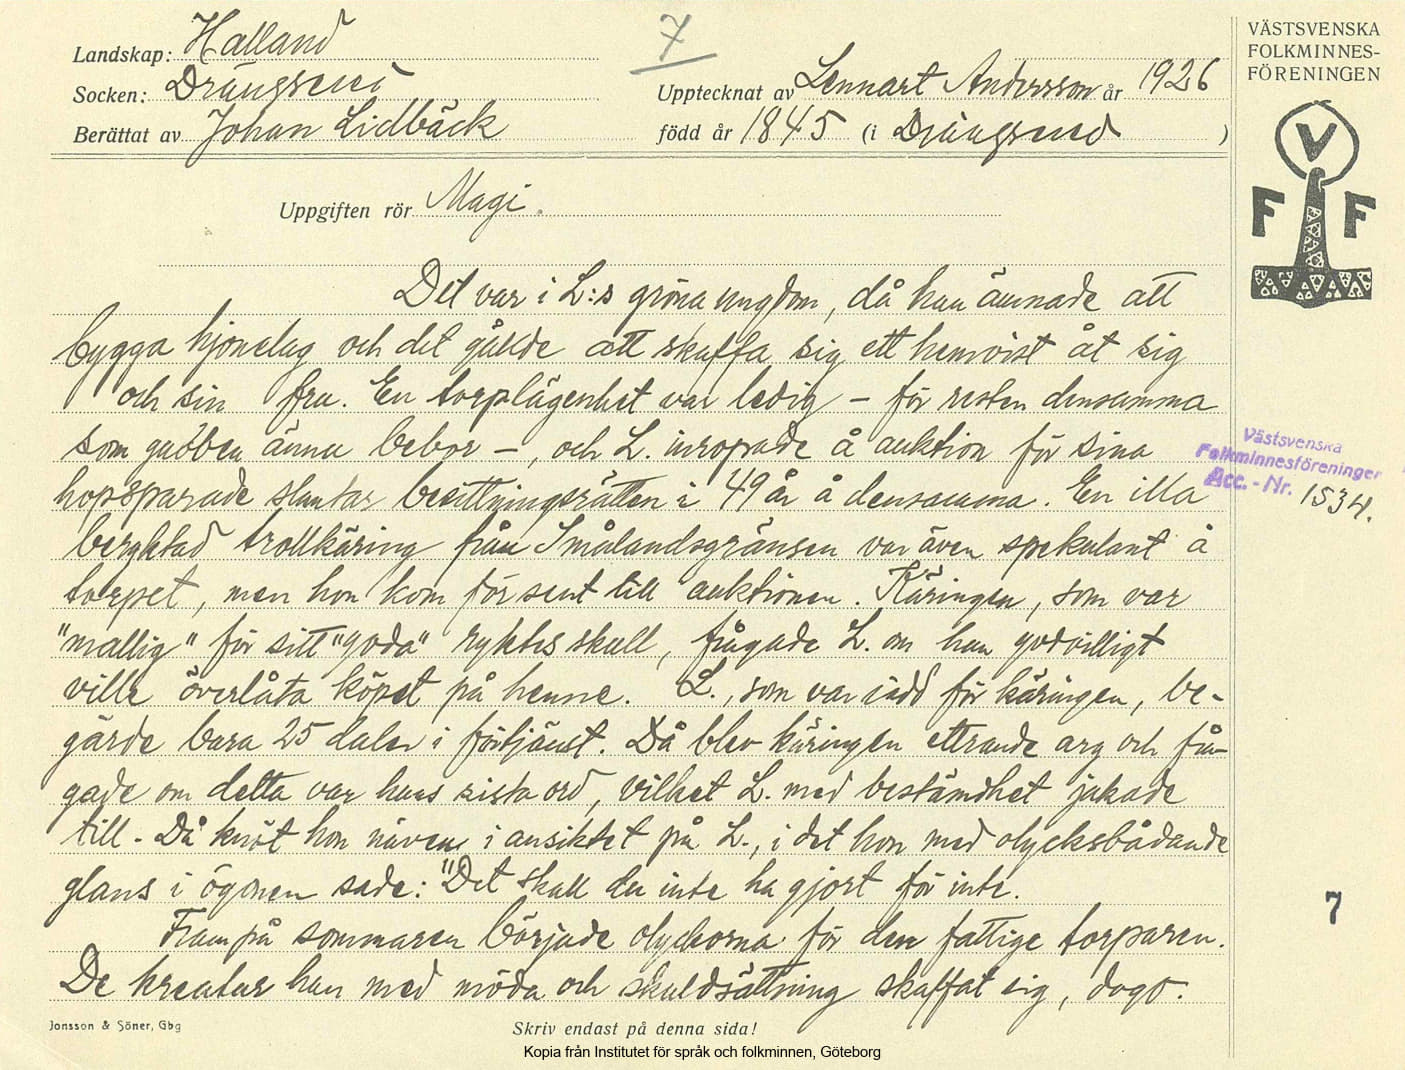 7
Landskap: Halland
Socken: Drängsered
Berättat av Johan Lidbäck
Upptecknat av Lennart Andersson år 1926
född år 1845 (i Drängsered )
Uppgiften rör Magi.
VÄSTSVENSKA
FOLKMINNES-
FÖRENINGEN
V
F F
Det var i L:s gröna ungdom, då han ämnade att
bygga hjonelag och det gällde att skaffa sig ett hemvist åt sig
och sin fru. En torplägenhet var ledig – för resten densamma
som gubben änna bebor –, och L. inropade å auktion för sina
hopsparade slantar besittningsrätten i 49 år å densamma. En illa
beryktad trollkäring från Smålandsgränsen var även spekulant å
torpet, men hon kom för sent till auktionen. Käringen, som var
"mallig" för sitt "goda" ryktes skull, frågade L. om han godvilligt
ville överlåta köpet på henne. L., som var rädd för käringen, be-
gärde bara 25 daler i förtjänst. Då blev käringen ettrande arg och frå-
gade om detta var hans sista ord, vilket L. med bestämdhet jakade
till. Då knöt hon näven i ansiktet på L., i det hon med olycksbådande
glans i ögonen sade: "Det skall du inte ha gjort för inte.
Frampå sommaren började olyckorna för den fattige torparen.
De kreatur han med möda och skuldsättning skaffat sig, dogo.
Västsvenska
Folkminnesföreningen
Acc. - Nr. 1534.
7
Jonsson & Söner, Gbg
Skriv endast på denna sida!
Kopia från Institutet för språk och folkminnen, Göteborg